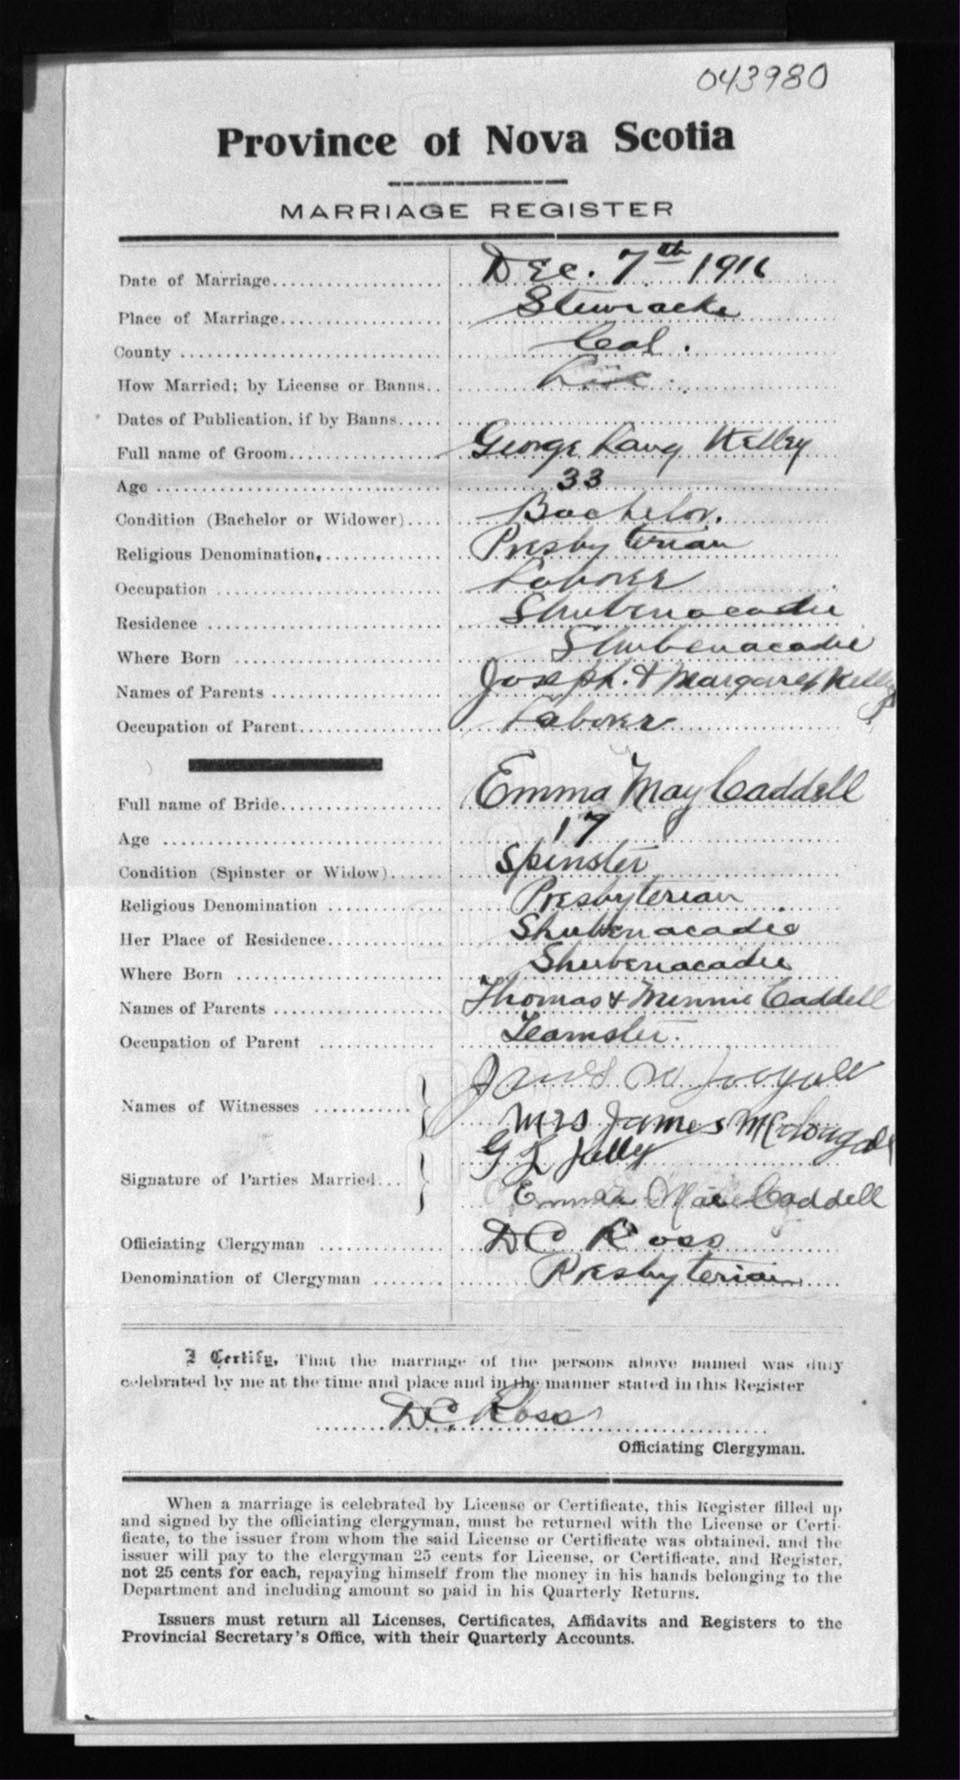 043980
Province of Nova Scotia
MARRIAGE REGISTER
Date of Marriage Dec. 7th 1916
Place of Marriage Stewiacke
County Col.
How Married; by License or Banns Lise.
Dates of Publication, if by Banns
Full name of Groom George Kelley
Age 33
Condition (Bachelor or Widower) Bachelor.
Religious Denomination, Presbyterian
Occupation Laborer
Residence Shubenacadie
Where Born Shubenacadie
Names of Parents Joseph. & Margaret Kelley
Occupation of Parent Laborer
Full name of Bride Emma May Caddell
Age 17
Condition (Spinster or Widow) Spinster
Religious Denomination Presbyterian
Her Place of Residence Shubenacadie
Where Born Shubenacadie
Names of Parents Thomas & Minnie Caddell
Occupation of Parent Teamster.
Names of Witnesses James
Mrs James McDougall
Signature of Parties Married G L Kelley
Emma Mae Caddell
Officiating Clergyman D C Ross
Denomination of Clergyman Presbyterian
I Certify, That the marriage of the persons above named was duly
celebrated by me at the time and place and in the manner stated in this Register
D C. Ross
Officiating Clergyman.
When a marriage is celebrated by License or Certificate, this Register filled up
and signed by the officiating clergyman, must be returned with the License or Certi-
ficate, to the issuer from whom the said License or Certificate was obtained, and the
issuer will pay to the clergyman 25 cents for License, or Certificate, and Register,
not 25 cents for each, repaying himself from the money in his hands belonging to the
Department and including amount so paid in his Quarterly Returns.
Issuers must return all Licenses, Certificates, Affidavits and Registers to the
Provincial Secretary's Office, with their Quarterly Accounts.